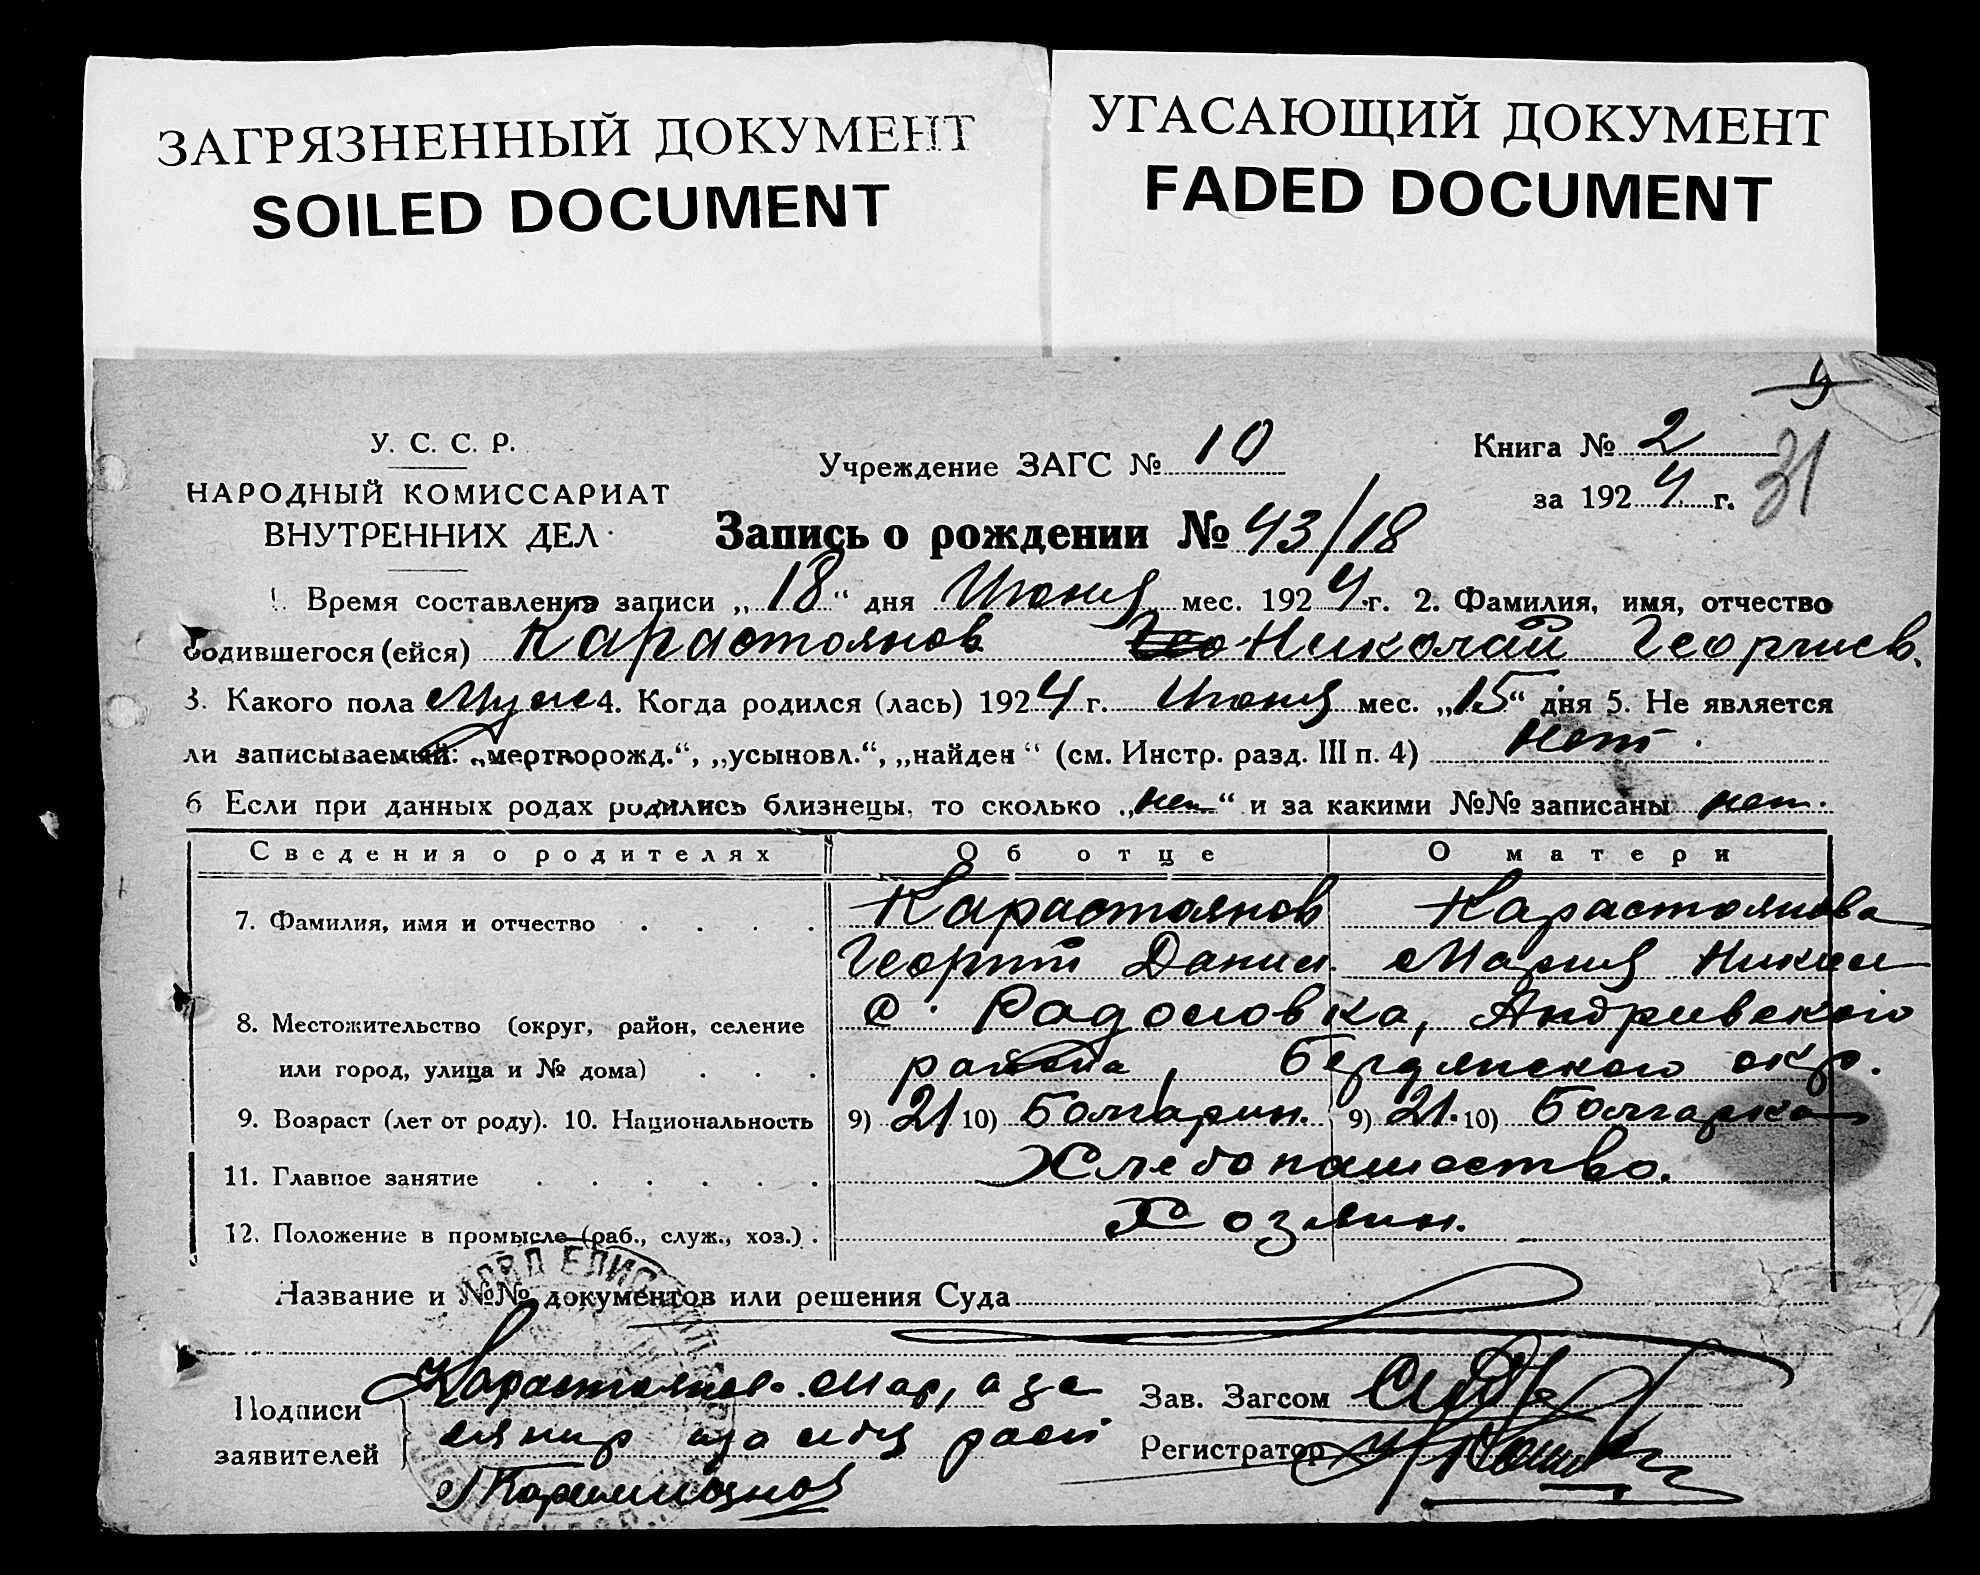 ЗАГРЯЗНЕННЫЙ ДОКУМЕНТ
SOILED DOCUMENT
УГАСАЮЩИЙ ДОКУМЕНТ
FADED DOCUMENT
У. С. С. Р.
НАРОДНЫЙ КОМИССАРИАТ
ВНУТРЕННИХ ДЕЛ
Учреждение ЗАГС № 10
Книга № 2
за 1924 г.
31
Запись о рождении № 43/18
1. Время составления записи „18“ дня Июня мес. 1924 г. 2. Фамилия, имя, отчество
родившегося (ейся) Карастоянов Николай Георгиев.
3. Какого пола Муж 4. Когда родился (лась) 1924 г. Июня мес. „15“ дня 5. Не является
ли записываемый: „мертворожд.“, „усыновл.“, „найден“ (см. Инстр. разд. III п. 4) Нет.
6 Если при данных родах родились близнецы, то сколько „нет“ и за какими №№ записаны нет.
Сведения о родителях Об отце О матери
7. Фамилия, имя и отчество Карастоянов Карастоянова
Георгий Данил. Мария Никол
8. Местожительство (округ, район, селение с. Радоловка, Андривского
или город, улица и № дома) района, Бердянского окр.
9. Возраст (лет от роду). 10. Национальность 9) 21 10) Болгарин. 9) 21. 10) Болгарка
11. Главное занятие Хлебопашество.
12. Положение в промысле (раб., служ., хоз.) Хозяин.
Название и №№ документов или решения Суда
Подписи
заявителей
Карастоянов
Зав. Загсом
Регистратор